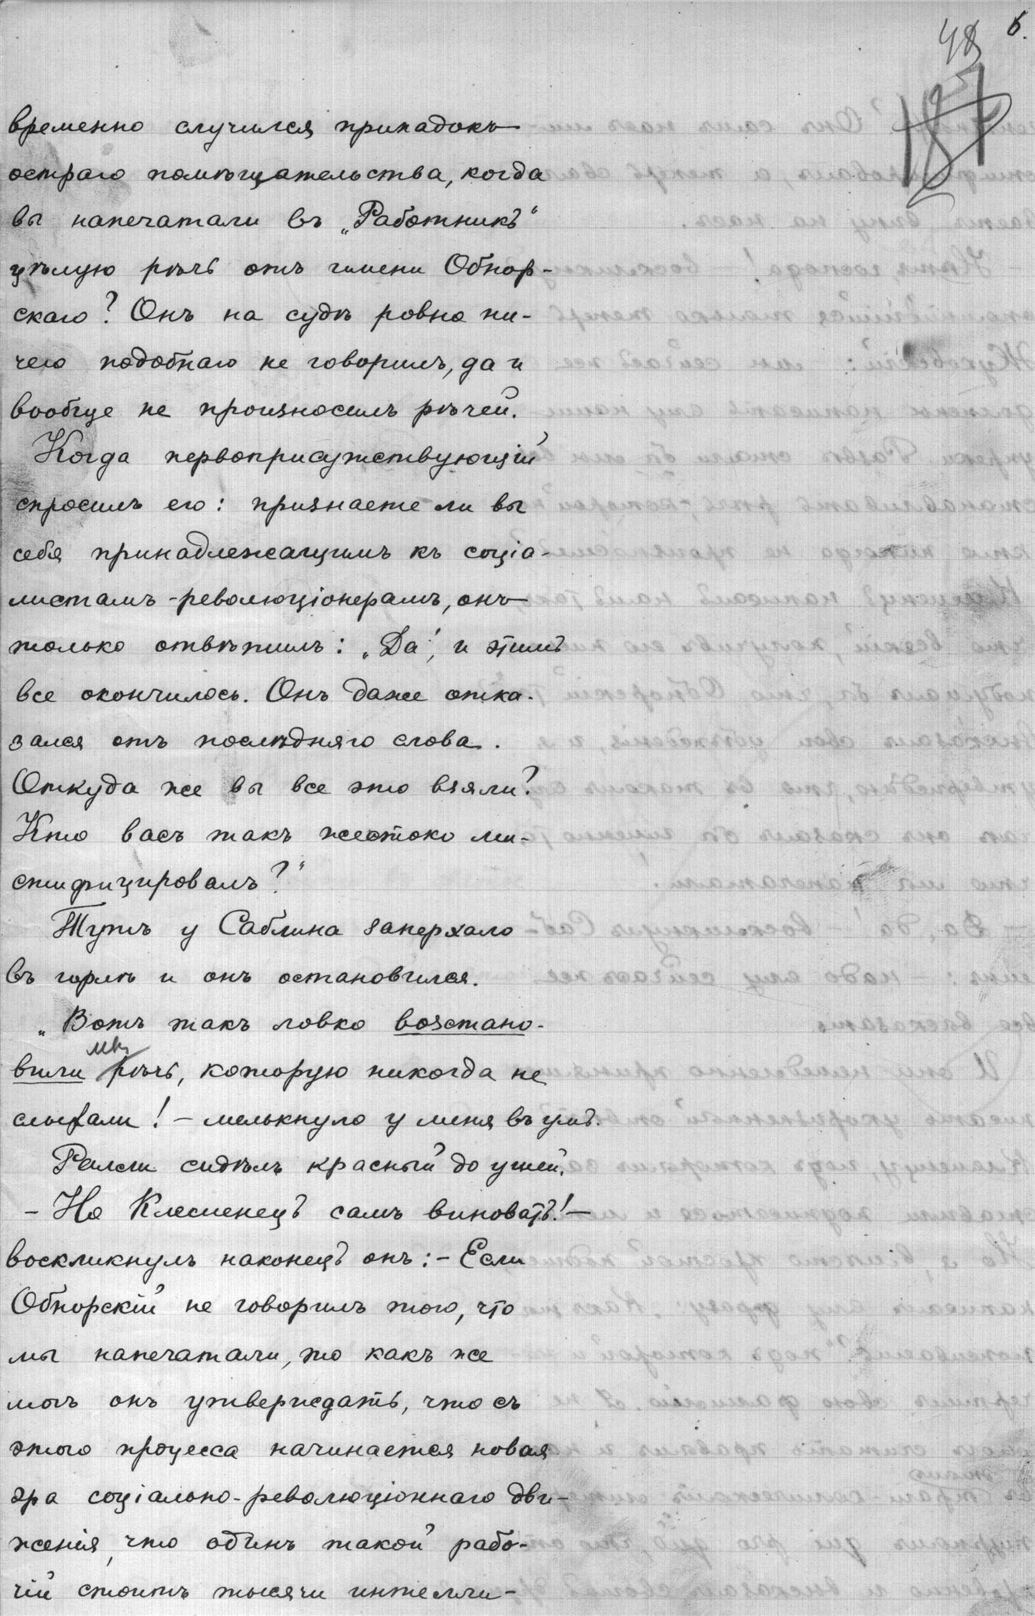 48 6.
187
временно случился припадокъ
остраго помѣщательства, когда
вы напечатали въ „Работникѣ“
цѣлую рѣчь отъ имени Обнор-
скаго? Онъ на судѣ ровно ни-
чего подобнаго не говорилъ, да и
вообще не произносилъ рѣчей.
Когда первоприсутствующій
спросилъ его: признаете ли вы
себя принадлежащимъ къ соціа-
листамъ-революціонерамъ, онъ
только отвѣтилъ: „Да“, и этимъ
все окончилось. Онъ даже отка-
зался отъ послѣдняго слова.
Откуда же вы все это взяли?
Кто васъ такъ жестоко ми-
стифицировалъ?“
Тутъ у Саблина заперхало
въ горлѣ и онъ остановился.
„Вотъ такъ ловко возстано-
мы
вили рѣчь, которую никогда не
слыхали! – мелькнуло у меня въ умѣ.
Ралли сидѣлъ красный до ушей.
– Но Клеменецъ самъ виноватъ! –
воскликнулъ наконецъ онъ: – Если
Обнорскій не говорилъ того, что
мы напечатали, то какъ же
могъ онъ утверждать, что съ
этого процесса начинается новая
эра соціально-революціоннаго дви-
женія, что одинъ такой рабо-
чій стоитъ тысячи интелли-